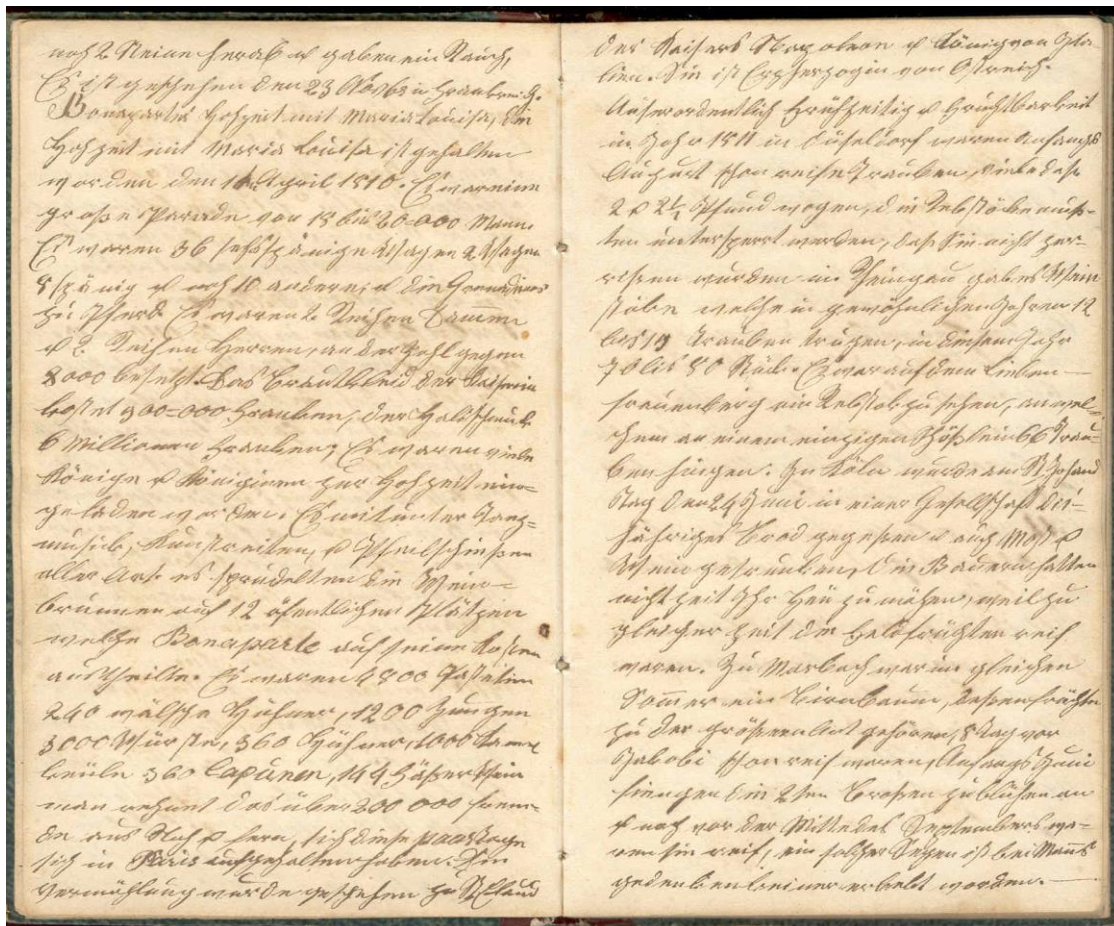 noch 2 Steine herab u gaben ein Rauch,
Es ist geschehen den 23 Novbr in Frankreich.
Bonapartis Hohzeit mit Maria Louisa, die
Hohzeit mit Maria Louisa ist gehalten
worden den 1 April 1810. Es war eine
große Parade von 18 bis 20-000 Mann
Es waren 36 sechsspänige Wagen 2 Wagen
8 spänig u noch 10 andere, u die Grenadiers
zu Pferd Es waren 2 Reihen Damen
u 2 Reihen Herren, an der Zahl gegen
8000 besetzt. Das Brautkleid der Kaiserin
kostet 900-000 Franken, der Halsschmuk
6 Millionen Franken; Es waren viele
Könige u Königinen zur Hohzeit ein=
geladen worden. Es mitunter Tanz=
musick, Kunstreiten, u Pfeilschießen
aller Art. es sprudelten die Wein=
brunnen auf 12 öfentlichen Plätzen
welche Bonaparte auf seine Kosten
austheilte. Es waren 4800 Pasteten
240 wälsche Hühner, 1200 Zungen
3000 Würste, 360 Hühner, 1000 Lams
keule 360 Capunen, 144 Fäßer Wein
man rechnet das über 200 000 frem=
de aus Nah u fern, sich diese paar Tage
sich in Paris aufgehalten haben. Die
Vermählung wurde geschehen zu St Cloud
des Kaisers Napoleon u König von Ita
lien. Sie ist Erzherzogin von Östreich.
Auserordentlich Frühzeitig u Fruchtbarkeit
im Jahr 1811 in Düseldorf waren Anfangs
August schon reife Trauben, viele das
2 u 2½ Pfund wogen, die Rebstöke muß=
ten untersperrt werden, daß Sie nicht zer=
rissen wurden im Rheingau gab es Wein
stöke welche in gewöhnlichen Jahren 12
bis 14 Trauben trugen, in diesem Jahr
70 bis 80 Stük. Es war auf dem Lieben
frauenberg ein Rebstok zu sehen, an wel=
chem an einem einzigen Schößlein 66 Trau
ben hingen. In Köln wurde am St Johans
Tag den 24 Juni in einer Gesellschaft die=
jähriges Brod gegeßen u auch Most u
Wein getrunken, Die Bauern hatten
nicht Zeit Ihr Heu zu mähen, weil zu
gleicher Zeit die Feldfrüchten reif
waren. Zu Marbach war im gleichen
Sommer ein Birnbaum, deßen Früchte
zu der größeren Art gehören, 8 Tag vor
Jakobi schon reif waren, Anfangs Juni
fiengen die 2ten Broßen zu blühen an
u noch vor der Mitte des Septembers wa=
ren sie reif, ein solcher Segen ist bei Manns
gedenken keiner erlebt worden.